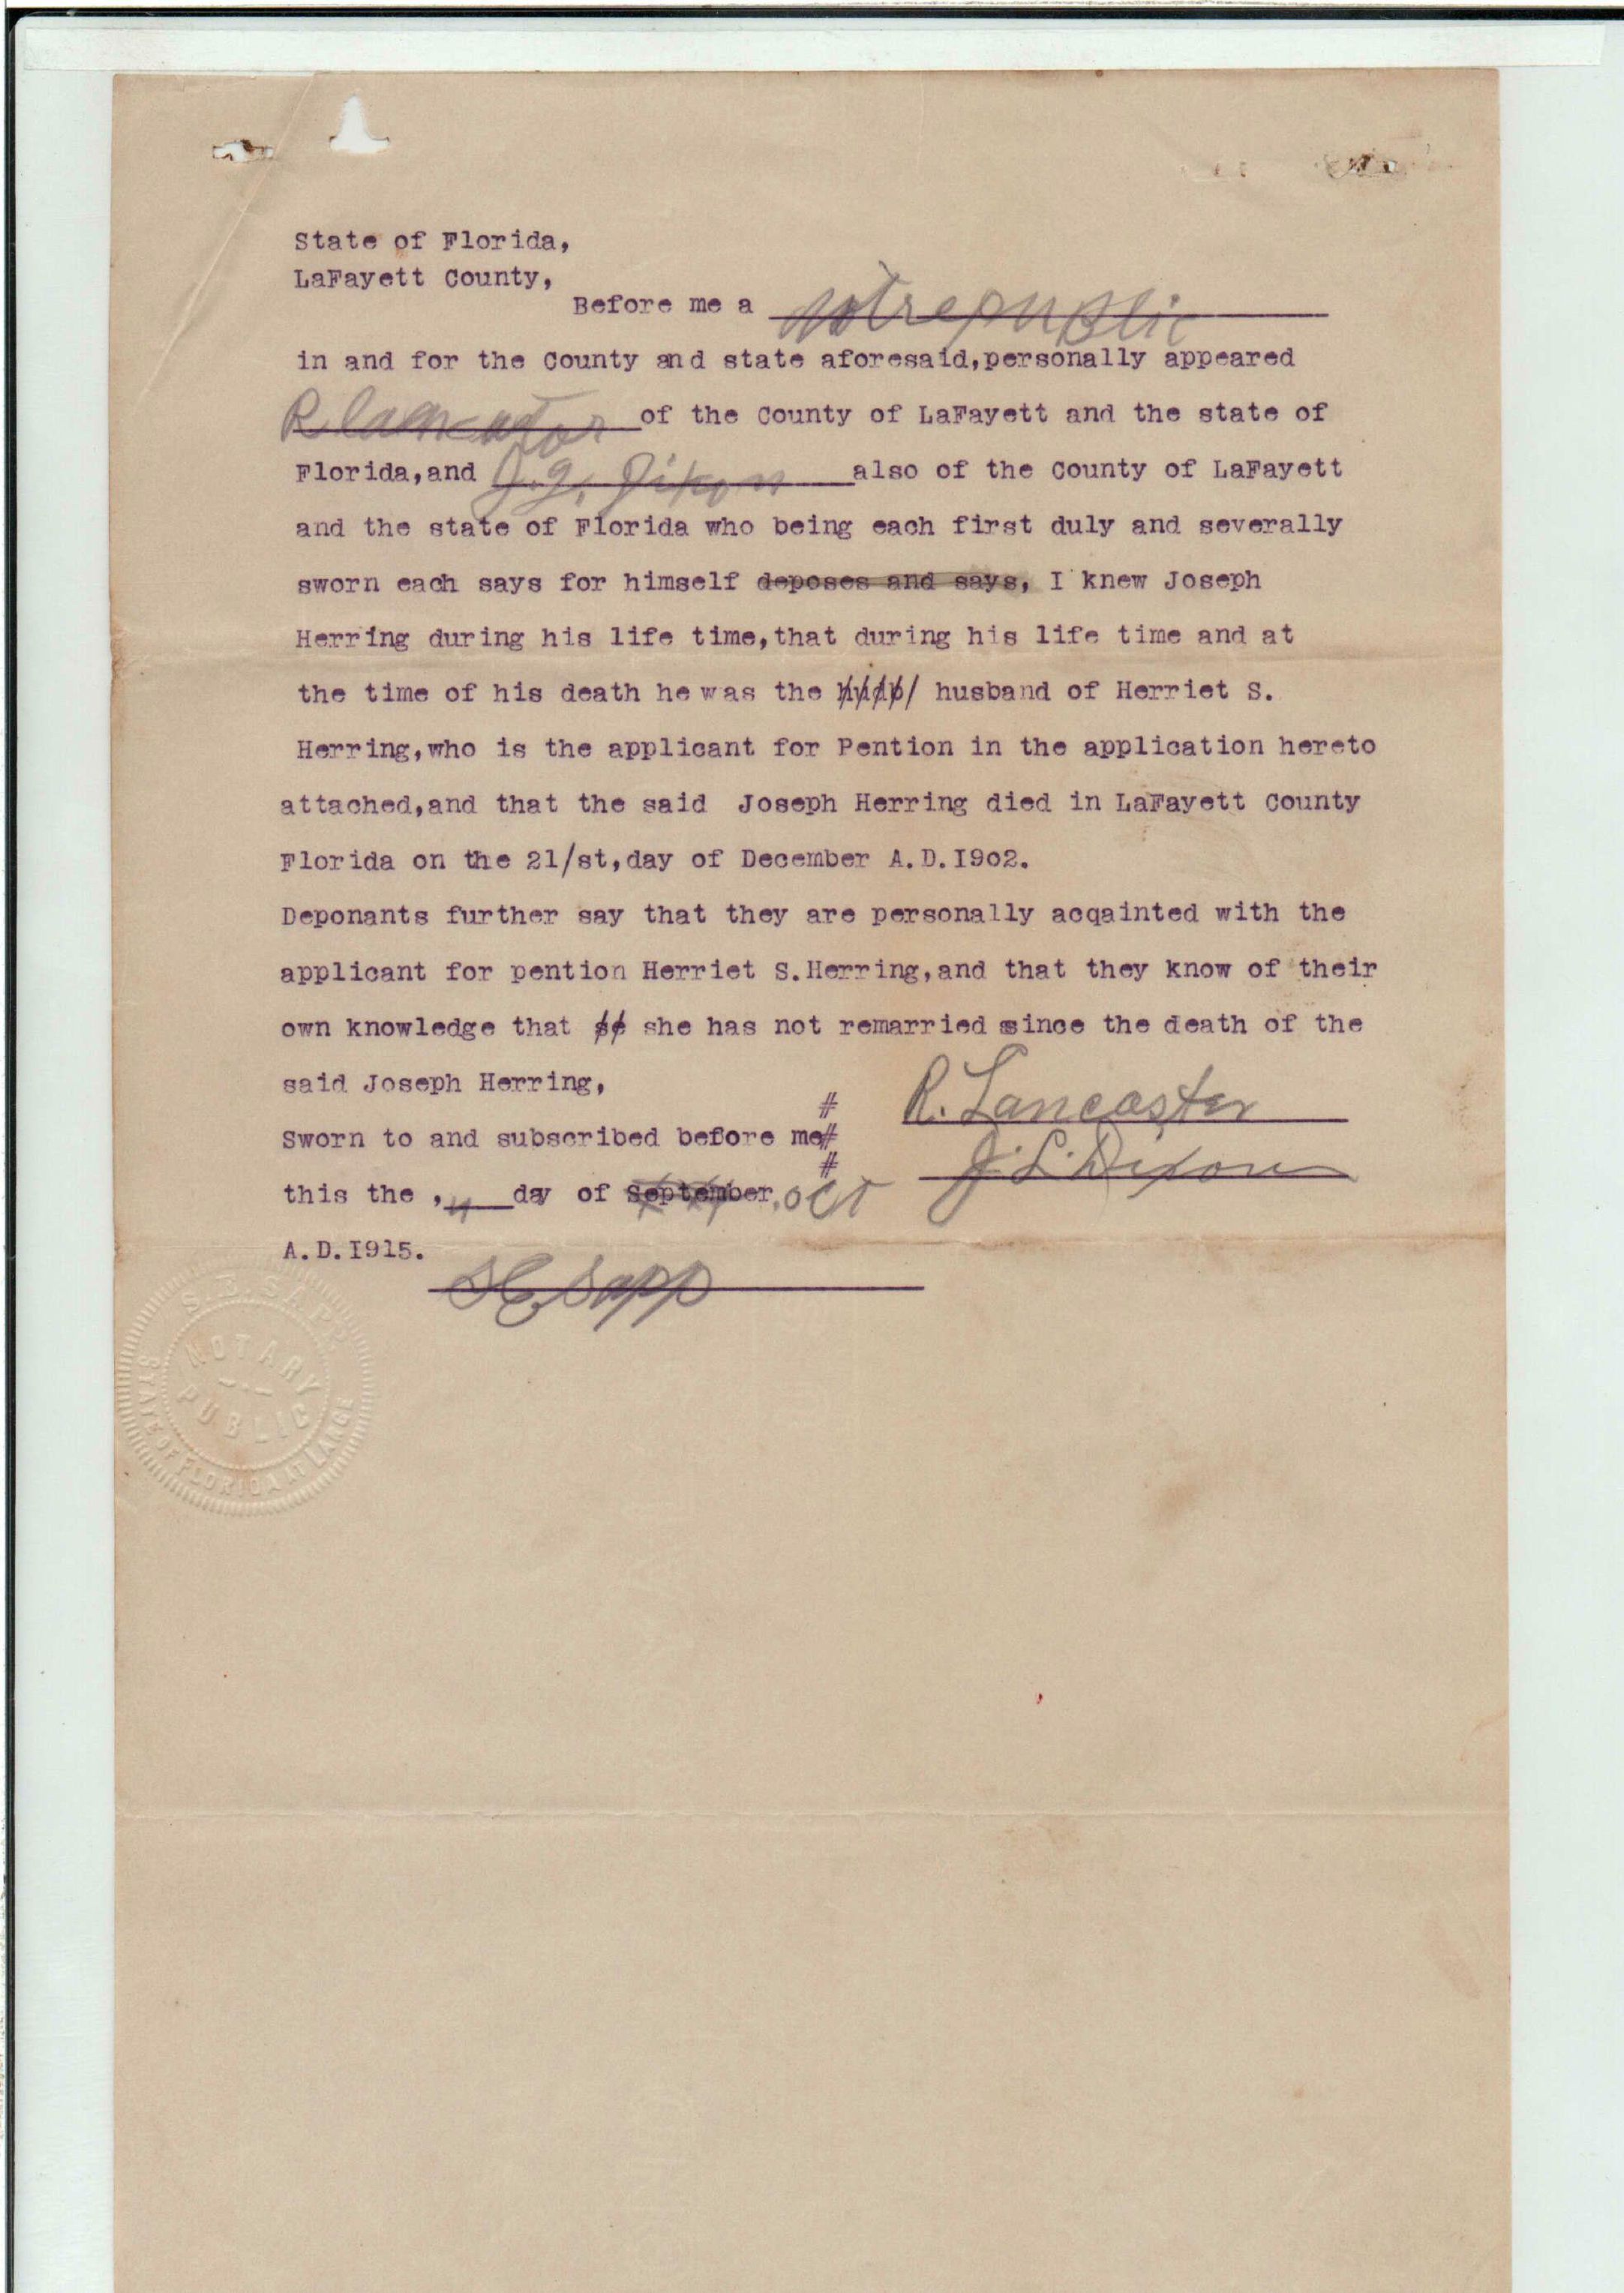 State of Florida,
LaFayett County,
Before me a Notrepublic
in and for the County and state aforesaid,personally appeared
R of the County of LaFayett and the state of
Florida,and J. Dixon also of the County of LaFayett
and the state of Florida who being each first duly and severally
sworn each says for himself deposes and says, I knew Joseph
Herring during his life time,that during his life time and at
the time of his death he was the husband of Herriet S.
Herring,who is the applicant for Pention in the application hereto
attached,and that the said Joseph Herring died in LaFayett County
Florida on the 21/st,day of December A.D.I902.
Deponants further say that they are personally acqainted with the
applicant for pention Herriet S.Herring,and that they know of their
own knowledge that se she has not remarried since the death of the
said Joseph Herring,
# R. Lancaster
Sworn to and subscribed before me#
# J. L. Dixon
this the , day of September. oct
A.D.I915.
Sapp
S. B. SAPP
NOTARY
PUBLIC
STATE OF FLORIDA AT LARGE